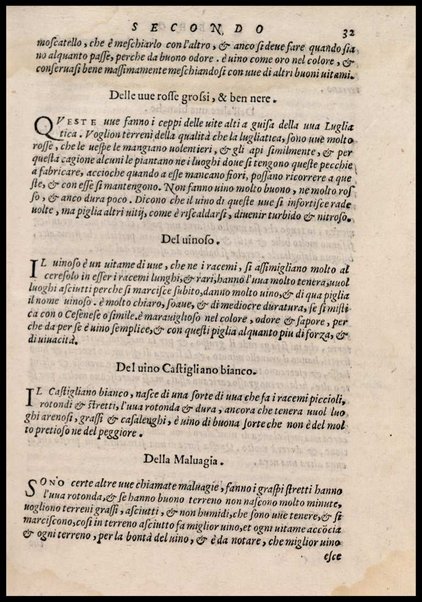 SECONDO 32
moscatello, che è meschiarlo con l'altro, & anco si deve fare quando sia
no alquanto passe, perche da buono odore. è uino come oro nel colore, &
conseruasi bene massimamente meschiandosi con uue di altri buoni uitami.
Delle uue rosse grossi, & ben nere.
QVESTE uue fanno i ceppi delle uite alti a guisa della uua Luglia
tica. Voglion terreni della qualità che la lugliatica, sono uue molto
rosse, che le uespe le mangiano uolentieri, & gli api similmente, & per
questa cagione alcuni le piantano ne i luoghi doue si tengono queste pecchie
a fabricare, accioche quando a esse mancano fiori, possano ricorrere a que
ste, & con esse si mantengono. Non fanno uino molto buono, ne molto ros
so, & anco dura poco. Dicono che il uino di queste uue si infortisce rade
uolte, ma piglia altri uitij, come è riscaldarsi, diuenir turbido & nitroso.
Del uinoso.
IL uinoso è un uitame di uue, che ne i racemi, si assimigliano molto al
ceresolo in esser i racemi lunghi, & rari, hanno l'uua molto tenera, uuol
luoghi asciutti perche si marcisce subito, danno molto uino, & di qua piglia
il nome uinoso. è molto chiaro, soaue, & di mediocre duratura, se si misti
ca con o Cesenese o simile. è marauiglioso nel colore, odore & sapore, per
che da per se è uino semplice, & con questi piglia alquanto piu di forza, &
di uiuacità.
Del uino Castigliano bianco.
IL Castigliano bianco, nasce di una sorte di uua che fa i racemi piccioli,
rotondi & stretti, l'uua rotonda & dura, ancora che tenera uuol luo
ghi arenosi, grassi & casalenghi, è uino di buona sorte che non è del mol
to pretioso ne del peggiore.
Della Maluagia.
SONO certe altre uue chiamate maluagie, fanno i graspi stretti hanno
l'uua rotonda, & se hanno buono terreno non nascono molto minute,
uogliono terreni grassi, asciutti, & non humidi, che sono uue tenere, & si
marciscono, cosi in terreno asciutto fa miglior uino, et ogni uitame accõcia
& ogni terreno, per la bontà del uino, & è da notare, che miglior uino
esce